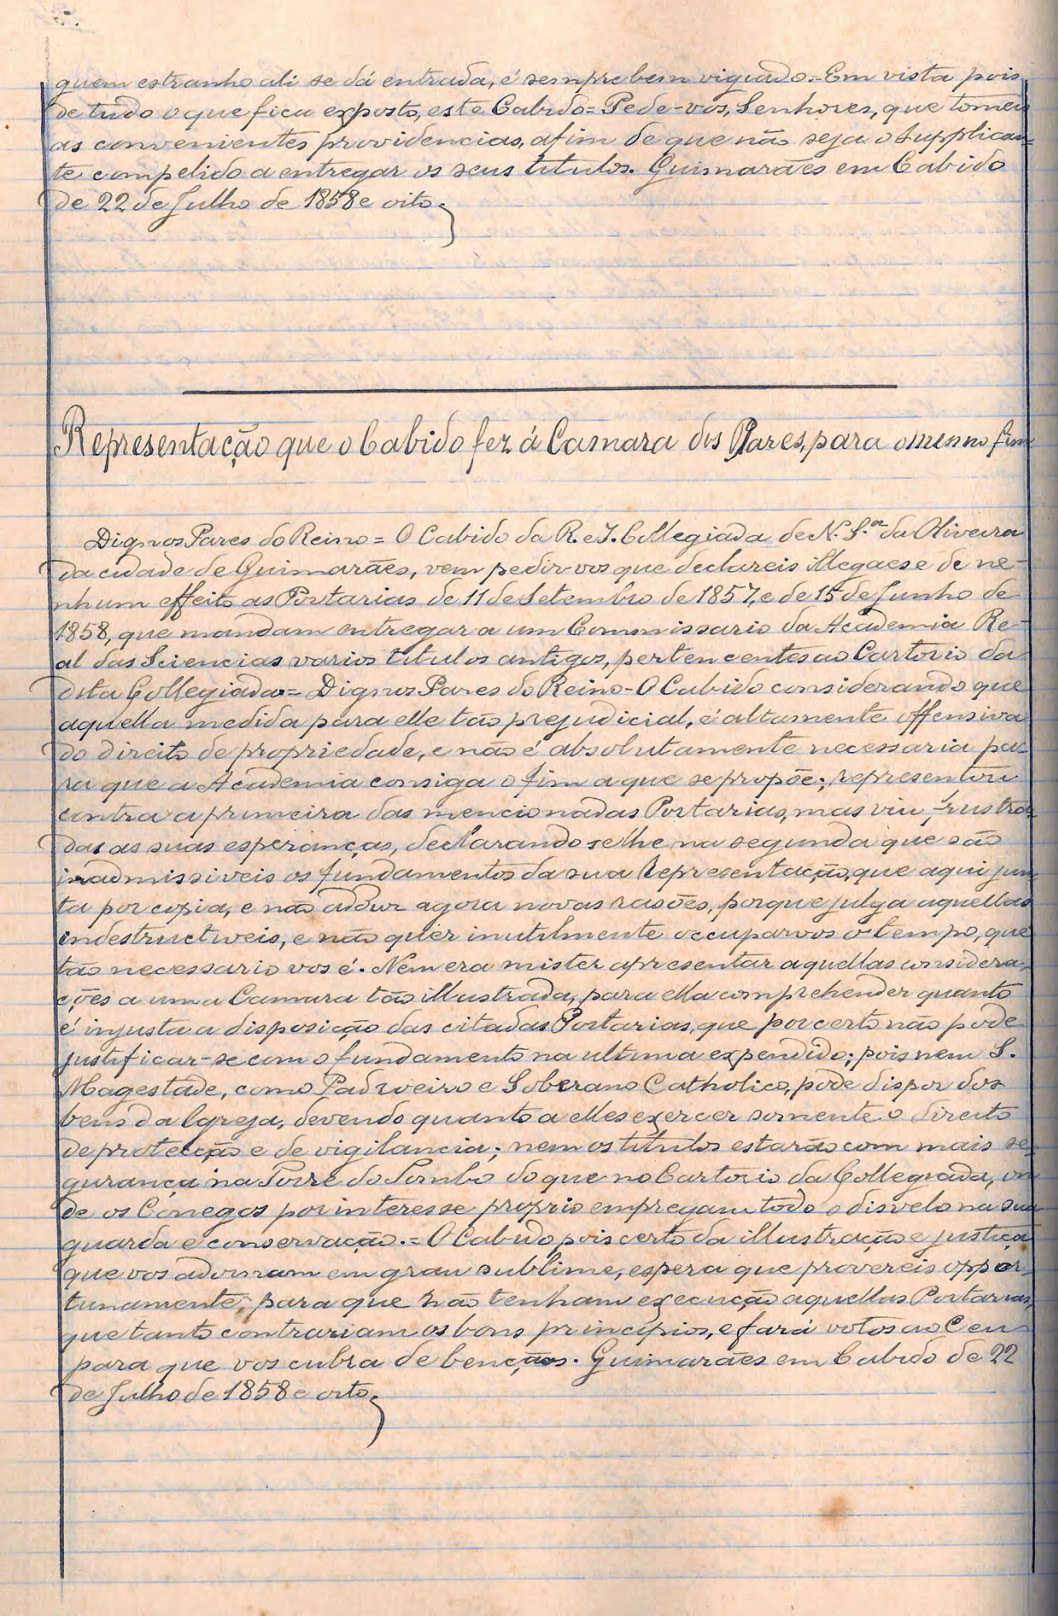 quem estranho ali se dá entrada, é sempre bem vigiado.=Em vista pois
de tudo o que fica exposto, este Cabido=Pede-vos, Senhores, que tomeis
as convenientes providencias, afim de que não seja o Supplican=
te compelido a entregar os seus titulos. Guimarães em Cabido
de 22 de Julho de 1858 e oito.
Representação que o Cabido fez á Camara dos Pares, para o mesmo fim
Dignos Pares do Reino= O Cabido da R. e I. Collegiada de N. S.ra da Oliveira
da cidade de Guimarães, vem pedir-vos que declareis illegaes e de ne-
nhum effeito as Portarias de 11 de Setembro de 1857, e de 15 de Junho de
1858, que mandam entregar a um Commissario da Academia Re-
al das Sciencias varios titulos antigos, pertencentes ao Cartorio da
dita Collegiada= Dignos Pares do Reino-O Cabido considerando que
aquella medida para elle tão prejudicial, é altamente offensiva
do direito de propriedade, e não é absolutamente necessaria pa-
ra que a Academia consiga o fim a que se propõe; representou
contra a primeira das mencionadas Portarias, mas viu frustra-
das as suas esperanças, declarando-se-lhe na segunda que são
inadmissiveis os fundamentos da sua representação, que aqui jun
ta por copia, e não adduz agora novas rasões, porque julga aquellas
indestructiveis, e não quer inutilmente occuparvos o tempo, que
tão necessario vos é. Nem era mister apresentar aquellas considera-
ções a uma Camara tão illustrada, para ella comprehender quanto
é injusta a disposição das citadas Portarias, que por certo não pode
justificar-se com o fundamento na ultima expendido; pois nem S.
Magestade, como Padroeiro e Soberano Catholico, pode dispor dos
bens da Igreja, devendo quanto a elles exercer somente o direito
de protecção e de vigilancia; nem os titulos estarão com mais se-
gurança na Torre do Tombo do que no Cartorio da Collegiada, on
de os Cónegos por interesse proprio empregam todo o disvelo na sua
guarda e conservação.=O Cabido pois certo da illustração e justiça
que vos adornam em grau sublime, espera que provereis oppor-
tunamente, para que não tenham execução aquellas Portarias,
que tanto contrariam os bons principios, e fará votos ao Ceu
para que vos cubra de bençãos. Guimarães em Cabido de 22
de Julho de 1858 e oito.